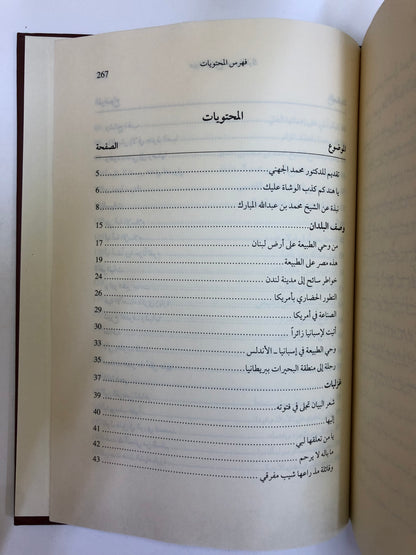 فهرس المحتويات
267
المحتويات
الموضوع الصفحة
تقديم للدكتور محمد الجهني 5
يا هند كم كذب الوشاة عليك 6
نبذة عن الشيخ محمد بن عبدالله المبارك 8
وصف البلدان 15
من وحي الطبيعة على أرض لبنان 17
هذه مصر على الطبيعة 19
خواطر سائح إلى مدينة لندن 24
التطور الحضاري بأمريكا 26
الصناعة في أمريكا 29
أتيت لإسبانيا زائراً 30
وحي الطبيعة في إسبانيا – الأندلس 33
رحلة إلى منطقة البحيرات ببريطانيا 35
غزليات 37
شعر البيان تجلى في فتونه 39
إليها 40
يا من تعلقها لبي 41
ما باله لا يرحم 42
وفاتنة مذ راعها شيب مفرقي 43